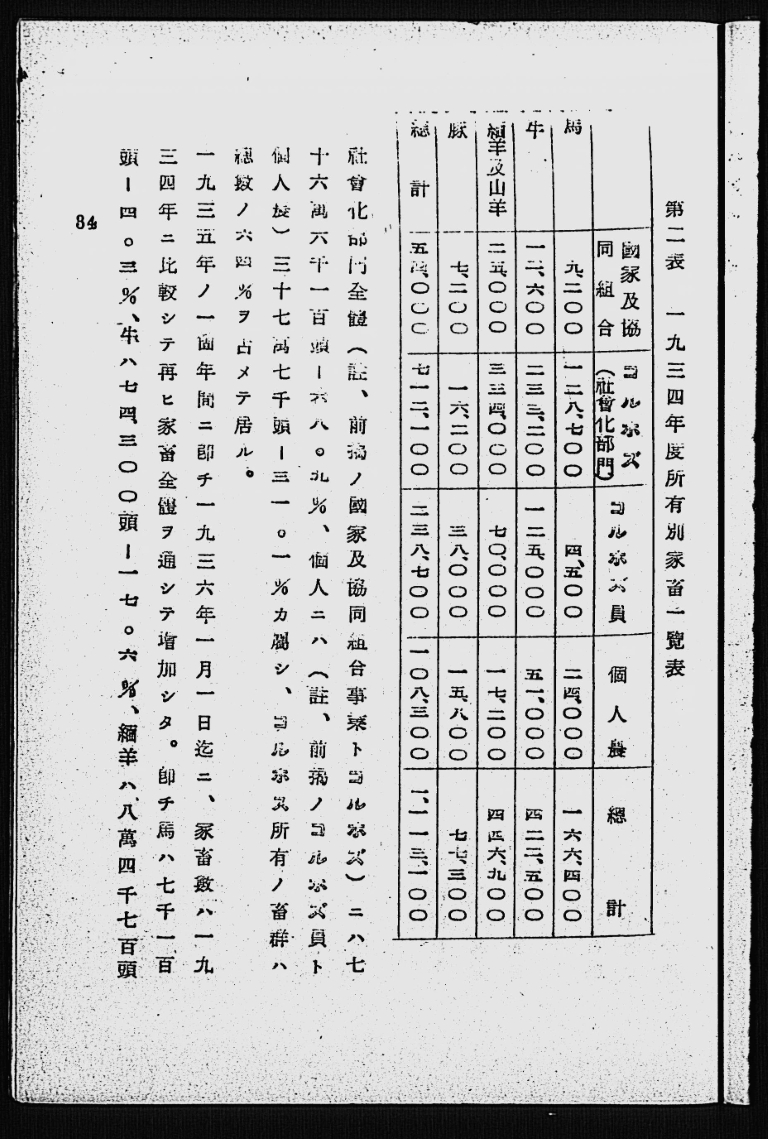 第二表 一九三四年度所有別家畜一覽表
國家及協同組合 コルホズ（社會化部門） コルホズ員 個人農 總計
馬 九、二〇〇 一二八、七〇〇 四、五〇〇 二四、〇〇〇 一六六、四〇〇
牛 一二、六〇〇 二三三、二〇〇 一二五、〇〇〇 五一、〇〇〇 四二二、五〇〇
緬羊及山羊 二五、〇〇〇 三三四、〇〇〇 七〇、〇〇〇 一七、二〇〇 四四六、九〇〇
豚 七、二〇〇 一六、二〇〇 三八、〇〇〇 一五、八〇〇 七七、三〇〇
總計 五四、〇〇〇 七一二、一〇〇 二三八、七〇〇 一〇八、三〇〇 一、一一三、一〇〇
社會化部門全體（註、前揭ノ國家及協同組合事業トコルホズ）ニハ七
十六萬六千一百頭ー六八。九％、個人ニハ（註、前揭ノコルホズ員ト
個人農）三十七萬七千頭ー三一。一％カ屬シ、コルホズ所有ノ畜群ハ
總數ノ六四％ヲ占メテ居ル。
一九三五年ノ一箇年間ニ卽チ一九三六年一月一日迄ニ、家畜數ハ一九
三四年ニ比較シテ再ヒ家畜全體ヲ通シテ增加シタ。卽チ馬ハ七千一百
頭ー四。三％、牛ハ七四、三〇〇頭ー一七。六％、緬羊ハ八萬四千七百頭
84